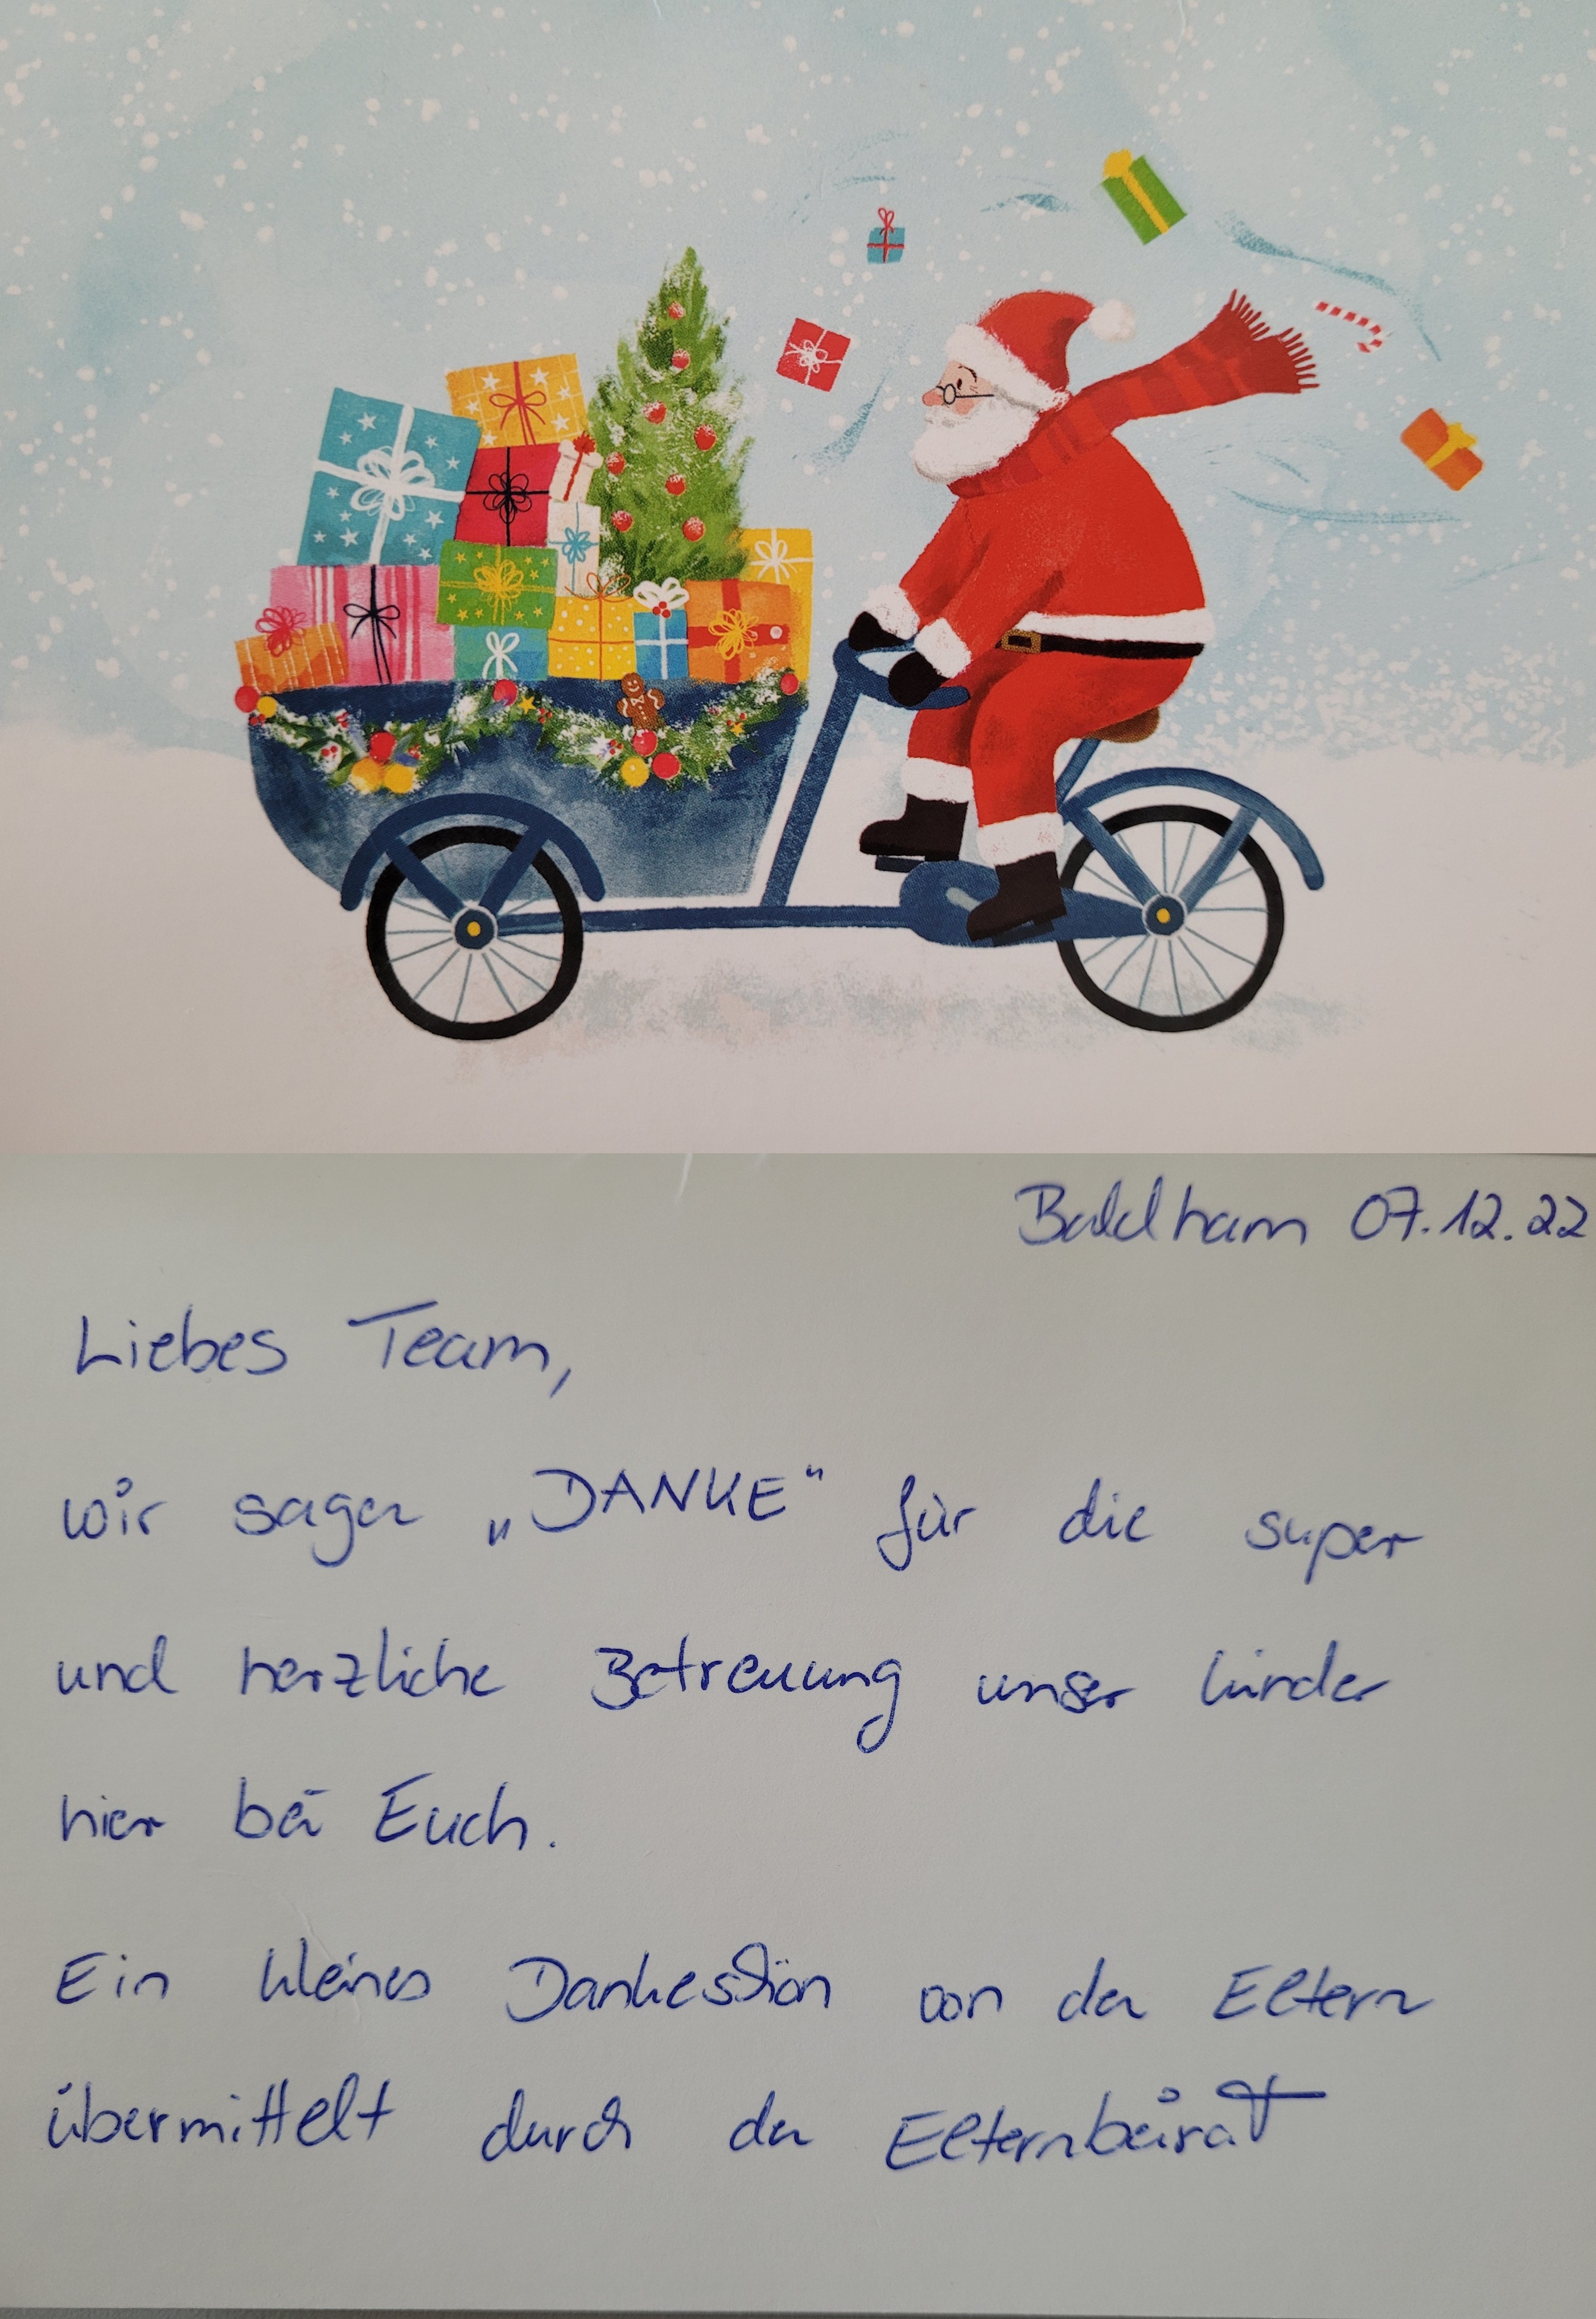 Baldham 07.12.22
Liebes Team,
wir sagen „DANKE“ für die super
und herzliche Betreuung unser Kinder
hier bei Euch.
Ein kleines Dankeschön von den Eltern
übermittelt durch den Elternbeirat